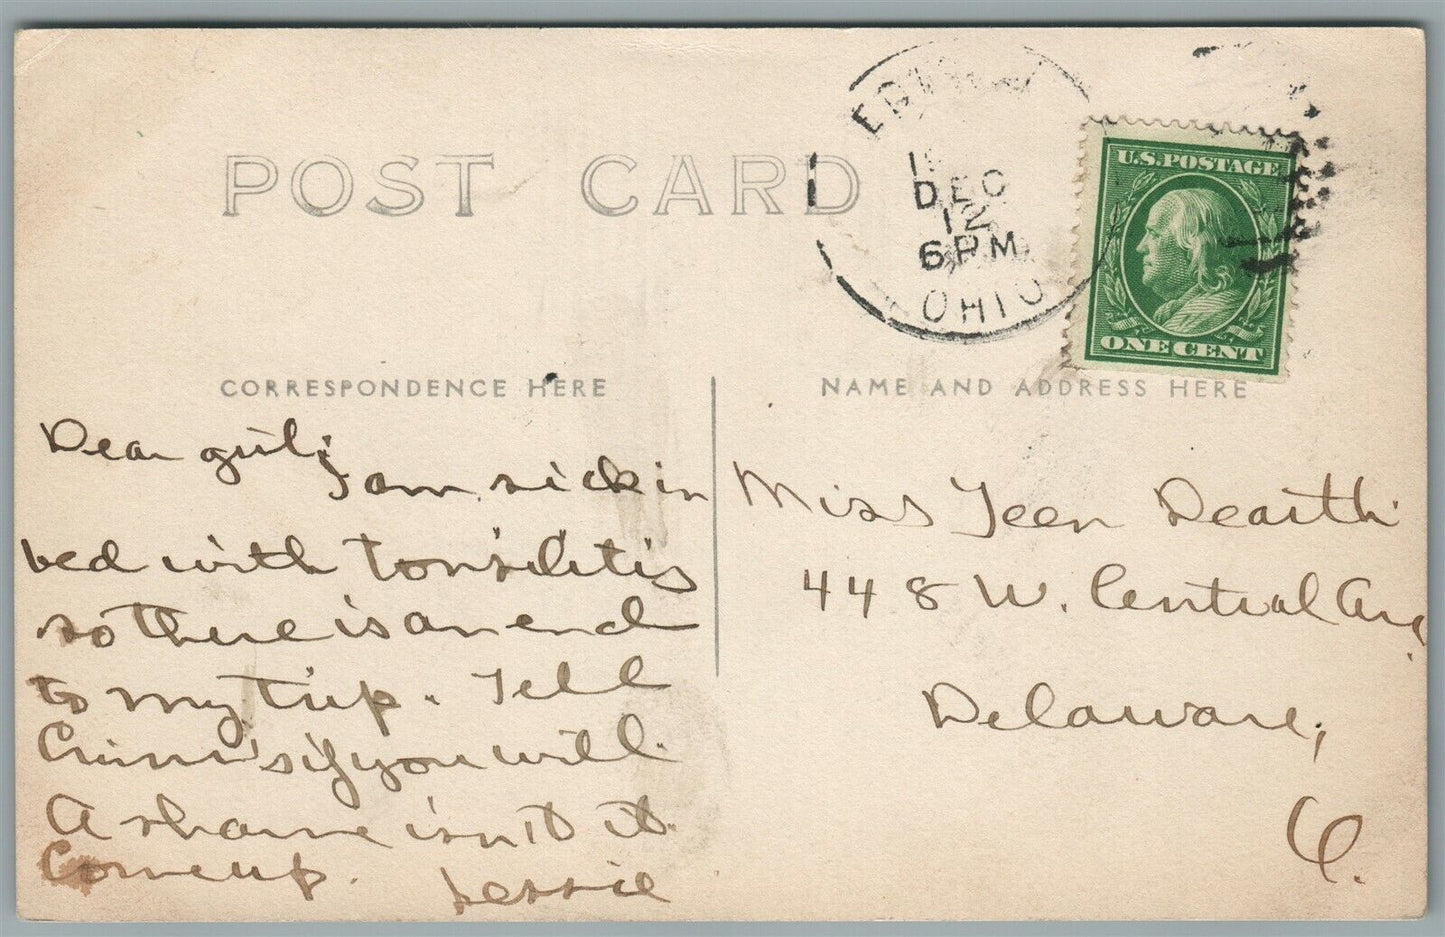 POST CARD
DEC
12
6 PM
OHIO
U.S. POSTAGE
ONE CENT
CORRESPONDENCE HERE
NAME AND ADDRESS HERE
Dear girl:
I am sick in
bed with tonsilitis
so there is an end
to my trip. Tell
if you will.
A shame isn't it.
Come up. Jessie
Miss Teen Dearth
448 W. Central Ave.
Delaware,
O.